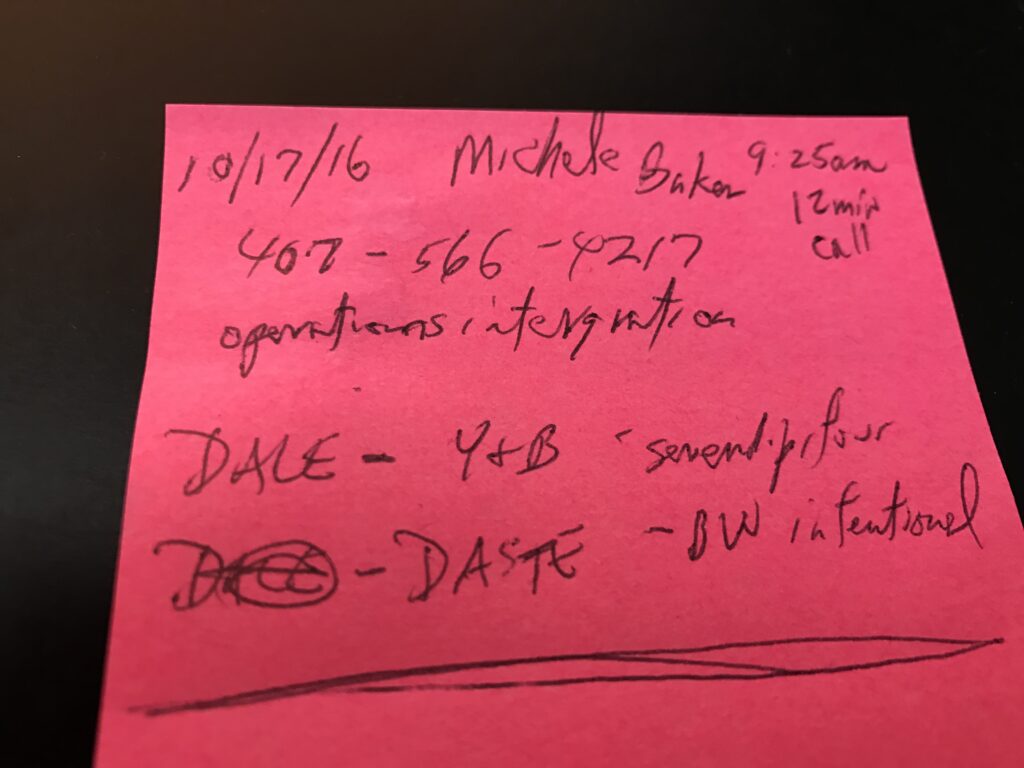 10/17/16 Michele Baker 9:25am
12min
call
407-566-4217
operations intergration
DALE - Y+B - serendipifour
- DASTE - BW intentional